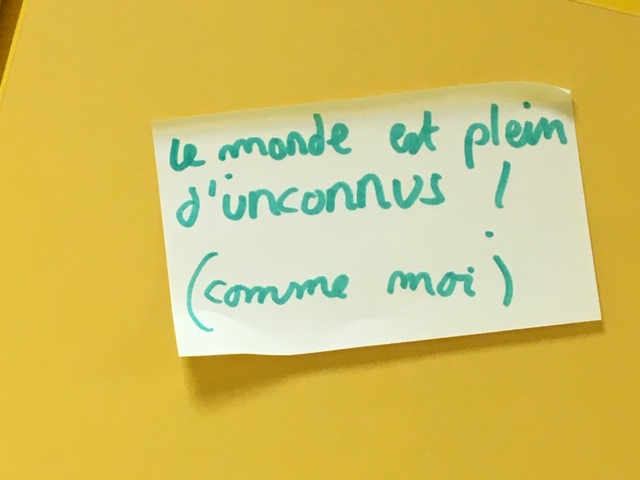 Le monde est plein
d'inconnus !
(comme moi)